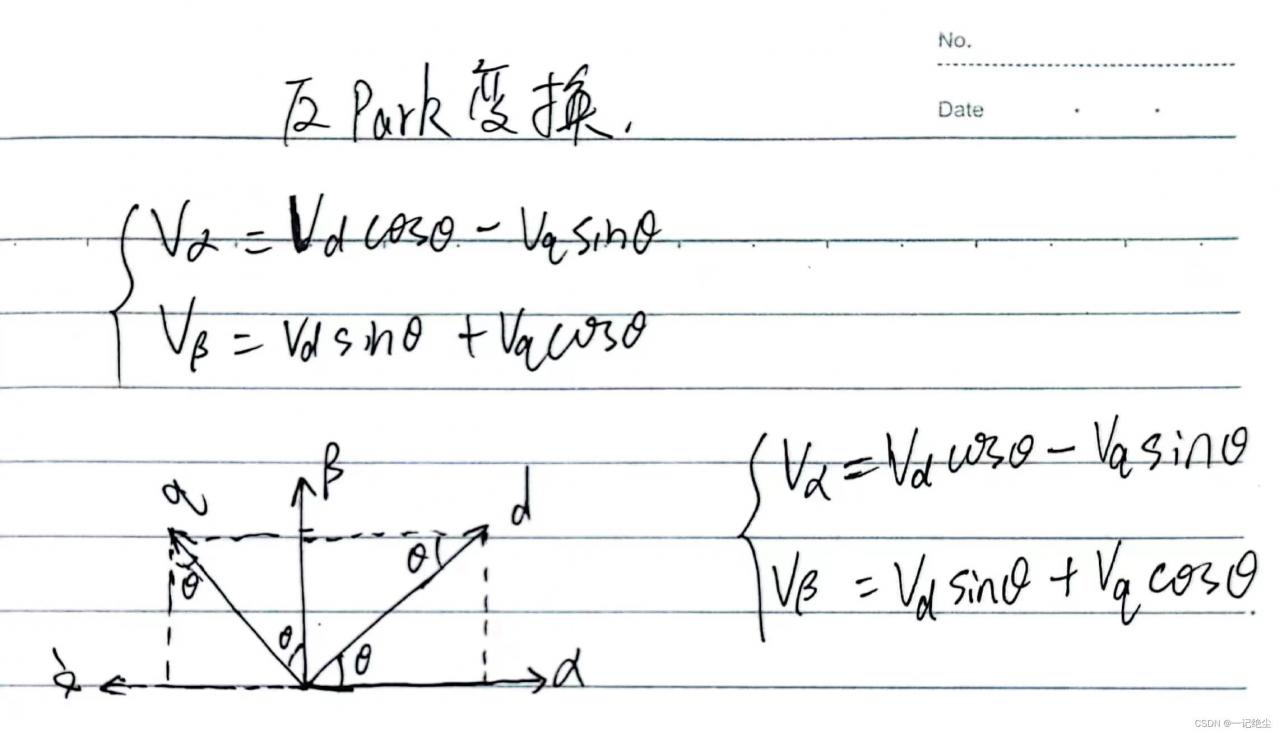 No.
Date
反Park变换.
Vα = Vd cosθ - Vq sinθ
Vβ = Vd sinθ + Vq cosθ
β
q
d
θ
θ
θ
θ
α
Vα = Vd cosθ - Vq sinθ
Vβ = Vd sinθ + Vq cosθ
CSDN @一记绝尘